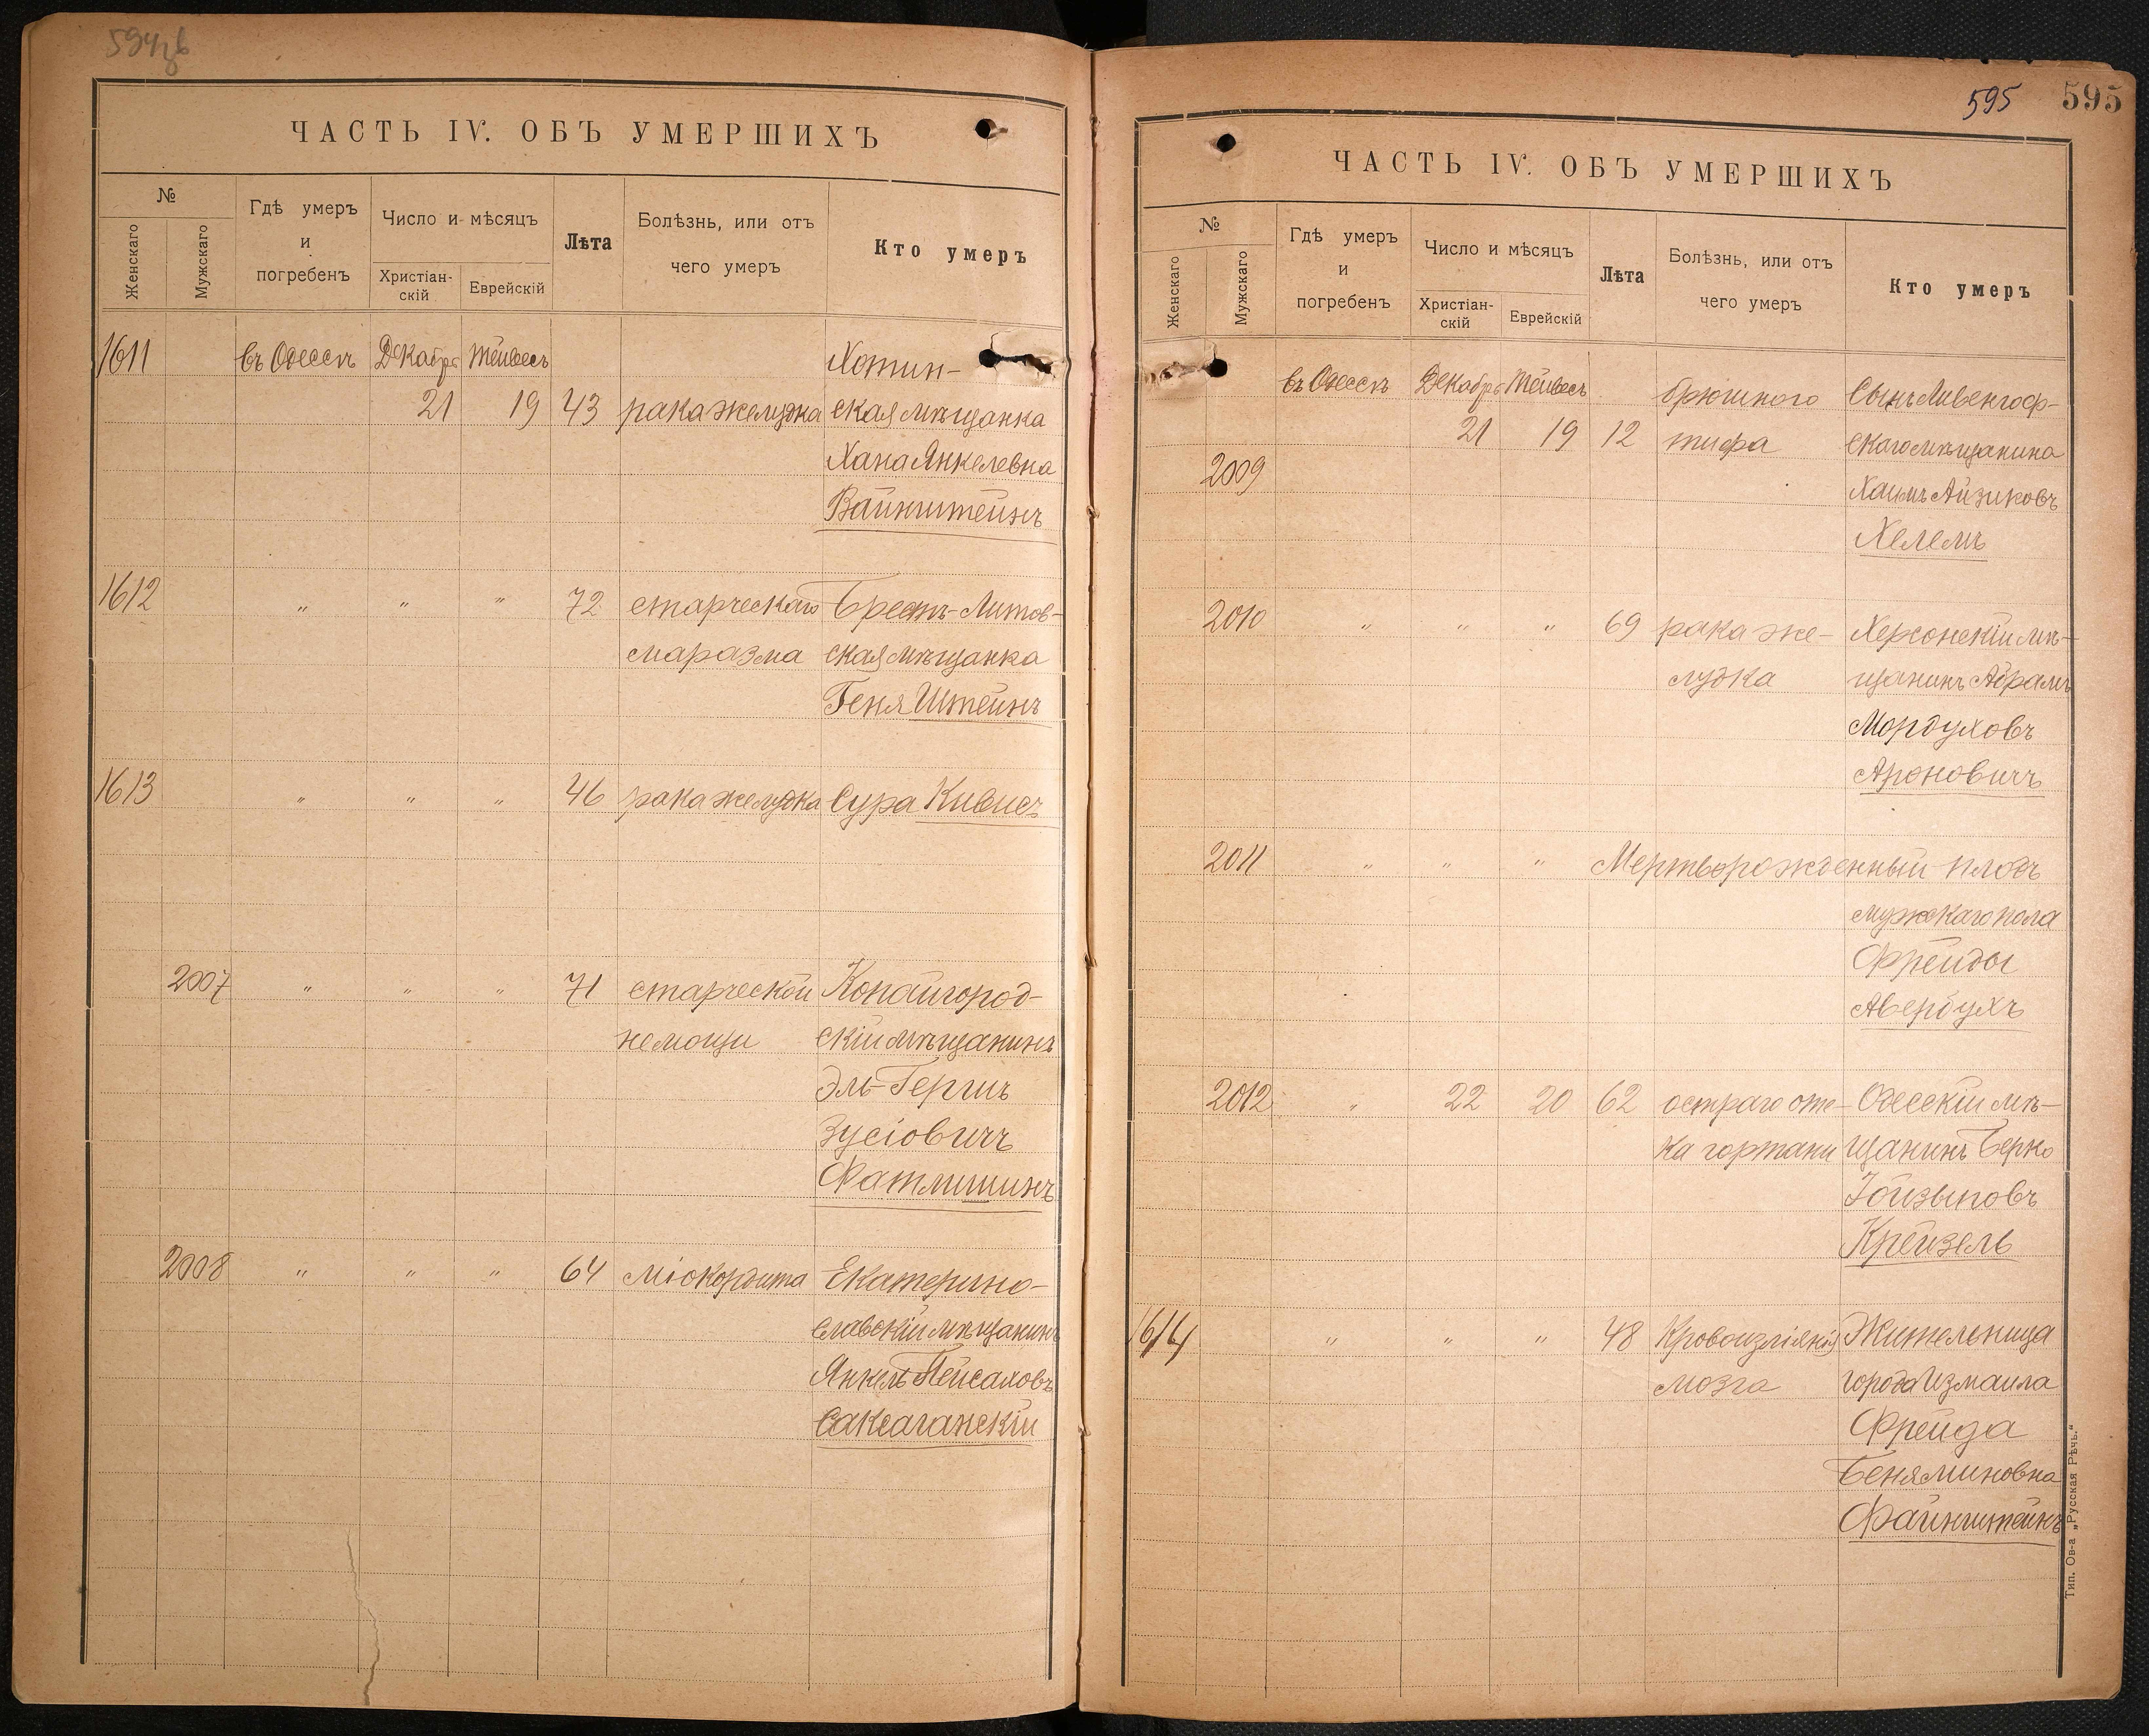 594об
ЧАСТЬ IV. ОБЪ УМЕРШИХЪ
№
Женскаго
Мужскаго
Гдѣ умеръ
и
погребенъ
Число и мѣсяцъ
Христіан-
скій
Еврейскій
Лѣта
Болѣзнь, или отъ
чего умеръ
Кто умеръ
1611 въ Одессѣ Декабрь Тейвесъ Хотин-
21 19 43 рака желудка ская мѣщанка
Хана Янкелевна
Вайнштейнъ
1612 " " " 72 старческаго Брестъ-Литов-
маразма ская мѣщанка
Геня Штейнъ
1613 " " " 46 рака желудка Сура Кивисъ
2007 " " " 71 старческой Копайгород-
немощи скій мѣщанинъ
Эль-Гершъ
Зусіовичъ
2008 " " " 64 міокардита Екатерино-
славскій мѣщанинъ
Янкель Пейсаховъ
Саксаганскій
595 595
ЧАСТЬ IV. ОБЪ УМЕРШИХЪ
№
Женскаго
Мужскаго
Гдѣ умеръ
и
погребенъ
Число и мѣсяцъ
Христіан-
скій
Еврейскій
Лѣта
Болѣзнь, или отъ
чего умеръ
Кто умеръ
въ Одессѣ Декабрь Тейвесъ брюшного Сынъ Ливенгоф-
21 19 12 тифа скаго мѣщанина
2009 Хаимъ Айзиковъ
Хелемъ
2010 " " " 69 рака же- Херсонскій мѣ-
лудка щанинъ Абрамъ
Мордуховъ
Ароновичъ
2011 " " " Мертворожденный плодъ
мужскаго пола
Фрейды
Авербухъ
2012 " 22 20 62 остраго оте- Одесскій мѣ-
ка гортани щанинъ Берко
Крейзель
1614 " " " 48 Кровоизліянія Жительница
мозга города Измаила
Фрейда
Беняминовна
Файнштейнъ
Тип. Ов-а „Русская Рѣчь."